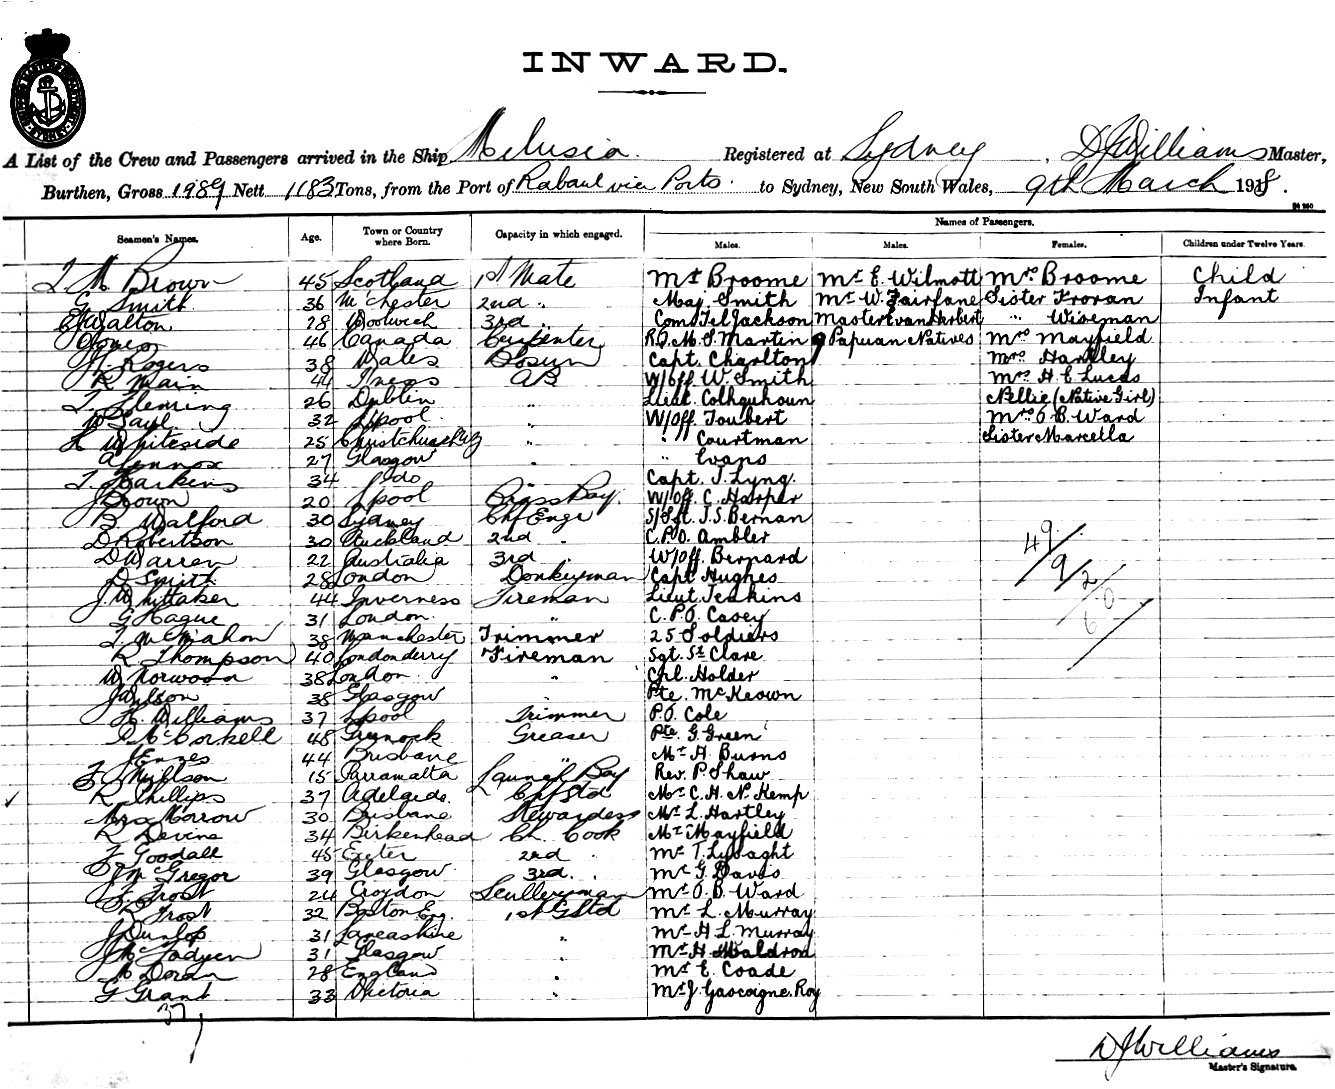 INWARD.
A List of the Crew and Passengers arrived in the Ship Melusia. Registered at Sydney, D J Williams Master,
Burthen, Gross 1989 Nett 1183 Tons, from the Port of Rabaul via Ports. to Sydney, New South Wales, 9th March 1918.
Names of Passengers.
Seamen's Names. Age. Town or Country where Born. Capacity in which engaged. Males. Males. Females. Children under Twelve Years.
Brown 45 Scotland 1st Mate Mr Broome Mr E. Wilmott Mrs Broome Child
G. Smith 36 Mchester 2nd " Maj. Smith Mr W. Fairfane Sister Infant
Walton 28 Woolwich 3rd " Jackson Master Evan Herbert " Wiseman
Jones 46 Canada Carpenter Martin 9 Papuan Natives Mrs Mayfield
Rogers 38 Wales Bosun Capt. Charlton Mrs Hartley
R Main 44 AB W/off W. Smith Mrs H. E. Lucas
T. Fleming 26 Dublin " Lieut. Colhquhoun Nellie (Native Girl)
32 Lpool " W/Off. Joubert Mrs O. B. Ward
Whiteside 25 Christchurch NZ " " Courtman Sister Marcella
Lennox 27 Glasgow " " Evans
T. Harkins 34 do " Capt. J. Lyng.
J Brown 20 Lpool W/Off. C. Harper
B Walford 30 Sydney Chf Engr S/Sgt. J. S. Bernan
D Robertson 30 Auckland 2nd " C.P.O. Ambler
D Warren 22 Australia 3rd " W/Off. Bernard
D Smith 28 London Donkeyman Capt Hughes
J. Whittaker 44 Inverness Fireman Lieut Jenkins
G Hague 31 London " C.P.O. Casey
T. McMahon 38 Manchester Trimmer 25 Soldiers
R Thompson 40 Londonderry Fireman Sgt. St Clare
W Norwood 38 London " Cpl. Holder
J Wilson 38 Glasgow " Pte. McKeown
H. Williams 37 Lpool Trimmer P.O. Cole
McCorkell 48 Greenock Greaser Pte. G. Green
J Ennes 44 Brisbane " Mr A. Burns
15 Parramatta Launch Boy Rev. P. Shaw
R Phillips 37 Adelaide Chf Std Mr C. H. N. Kemp
Mrs Morrow 30 Brisbane Stewardess Mr L. Hartley
R Devine 34 Birkenhead Ch. Cook Mr Mayfield
J Goodall 45 Exeter 2nd " Mr T. Lysaght
J McGregor 39 Glasgow 3rd " Mr G. Davis
Frost 24 Croydon Sculleryman Mr O. B. Ward
R Frost 32 Boston Eng. 1st G Std Mr L. Murray
J Dunlop 31 Lancashire " Mr H L. Murray
McFadyen 31 Glasgow " Mr H Waldron
Doran 28 England " Mr E. Coade
G Grant 33 Victoria " Mr J. Gascoigne Roy
37
49
9/2
0
6
D J Williams
Master's Signature.